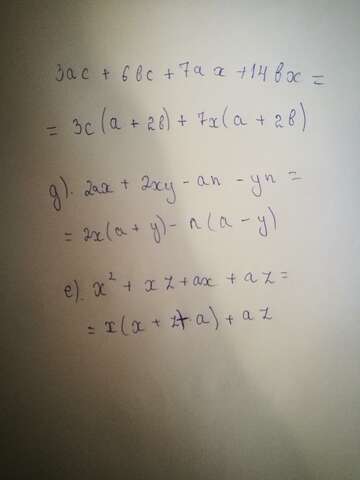 3ac + 6вc + 7ax + 14вx =
= 3c(a + 2в) + 7x(a + 2в)
д). 2ax + 2xy - an - yn =
= 2x(a + y) - n(a - y)
е). x² + xz + ax + az =
= x(x + z + a) + az